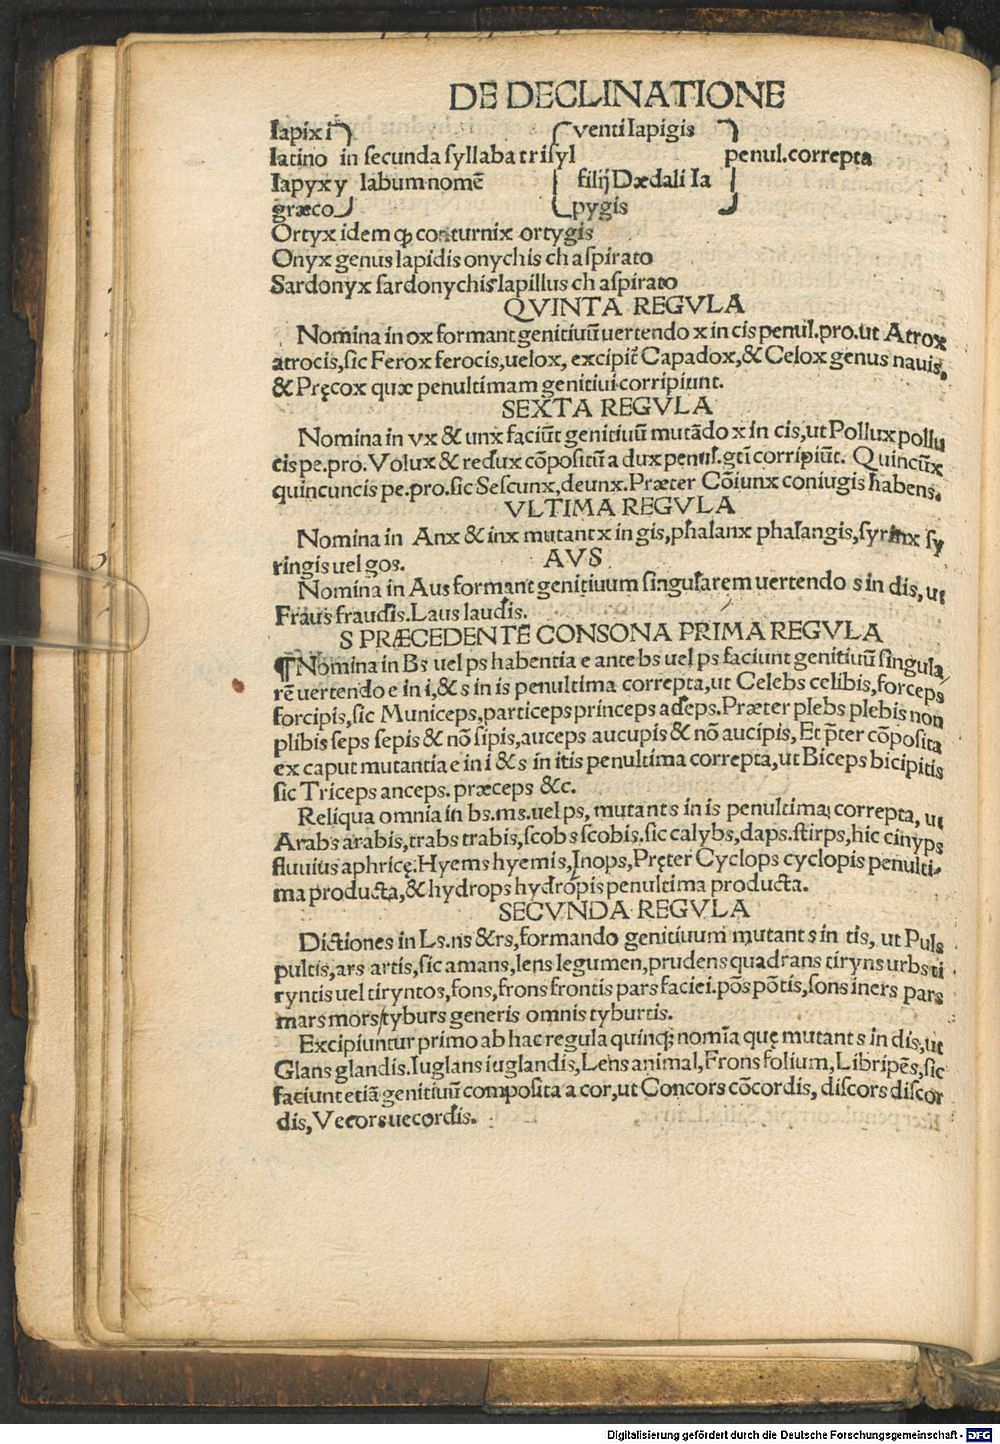 DE DECLINATIONE
Iapix i venti Iapigis
latino in secunda syllaba trisyl penul.correpta
Iapyx y labum nomē filij Dædali Ia
græco pygis
Ortyx idem ꝙ conturnix ortygis
Onyx genus lapidis onychis ch aspirato
Sardonyx sardonychis lapillus ch aspirato
QVINTA REGVLA
Nomina in ox formant genitiuū uertendo x in cis penul.pro.ut Atrox
atrocis,sic Ferox ferocis,uelox, excipiť Capadox,& Celox genus nauis,
& Pręcox quæ penultimam genitiui corripiunt.
SEXTA REGVLA
Nomina in vx & unx faciūt genitiuū mutādo x in cis,ut Pollux pollu
cis pe.pro.Volux & redux cōpositū a dux penul.gtī corripiūt. Quincūx
quincuncis pe.pro.sic Sescunx,deunx.Præter Cōiunx coniugis habens.
VLTIMA REGVLA
Nomina in Anx & inx mutant x in gis,phalanx phalangis,syrinx sy
ringis uel gos. AVS
Nomina in Aus formant genitiuum singularem uertendo s in dis, ut
Fraus fraudis.Laus laudis.
S PRÆCEDENTE CONSONA PRIMA REGVLA
¶Nomina in Bs uel ps habentia e ante bs uel ps faciunt genitiuū singula
rē uertendo e in i,& s in is penultima correpta,ut Celebs celibis,forceps
forcipis,sic Municeps,particeps princeps adeps.Præter plebs plebis non
plibis seps sepis & nō sipis,auceps aucupis & nō aucipis, Et p̄ter cōposita
ex caput mutantia e in i & s in itis penultima correpta,ut Biceps bicipitis
sic Triceps anceps. præceps &c.
Reliqua omnia in bs.ms.uel ps, mutant s in is penultima correpta, ut
Arabs arabis,trabs trabis,scobs scobis.sic calybs,daps.stirps,hic cinyps
fluuius aphricę.Hyems hyemis,Inops,Pręter Cyclops cyclopis penulti-
ma producta,& hydrops hydropis penultima producta.
SECVNDA REGVLA
Dictiones in Ls.ns &rs,formando genitiuum mutant s in tis, ut Puls
pultis,ars artis,sic amans,lens legumen,prudens quadrans tiryns urbs ti
ryntis uel tiryntos,fons,frons frontis pars faciei.pōs pōtis,sons iners pars
mars mors/tyburs generis omnis tyburtis.
Excipiuntur primo ab hac regula quinqꝫ nomīa quę mutant s in dis,ut
Glans glandis.Iuglans iuglandis,Lens animal,Frons folium,Libripēs,sic
faciunt etiā genitiuū composita a cor,ut Concors cōcordis, discors discor
dis,Vecors uecordis.
Digitalisierung gefördert durch die Deutsche Forschungsgemeinschaft - DFG